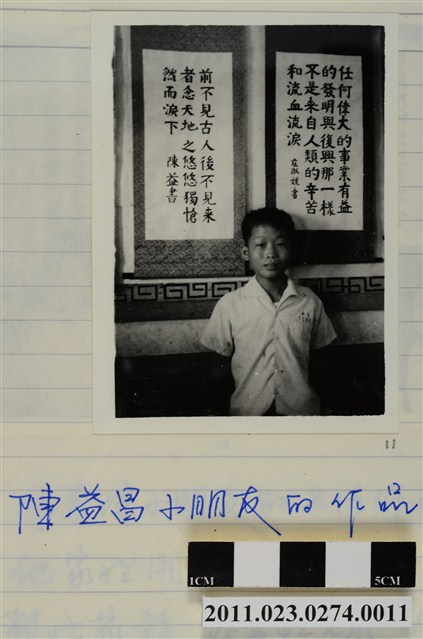 任何偉大的事業有益
的發明與復興那一樣
不是来自人類的辛苦
和流血流淚
書
前不見古人後不見来
者念天地之悠悠獨愴
然而淚下
陳益書
11
陳益昌小朋友的作品
1CM 5CM
2011.023.0274.0011